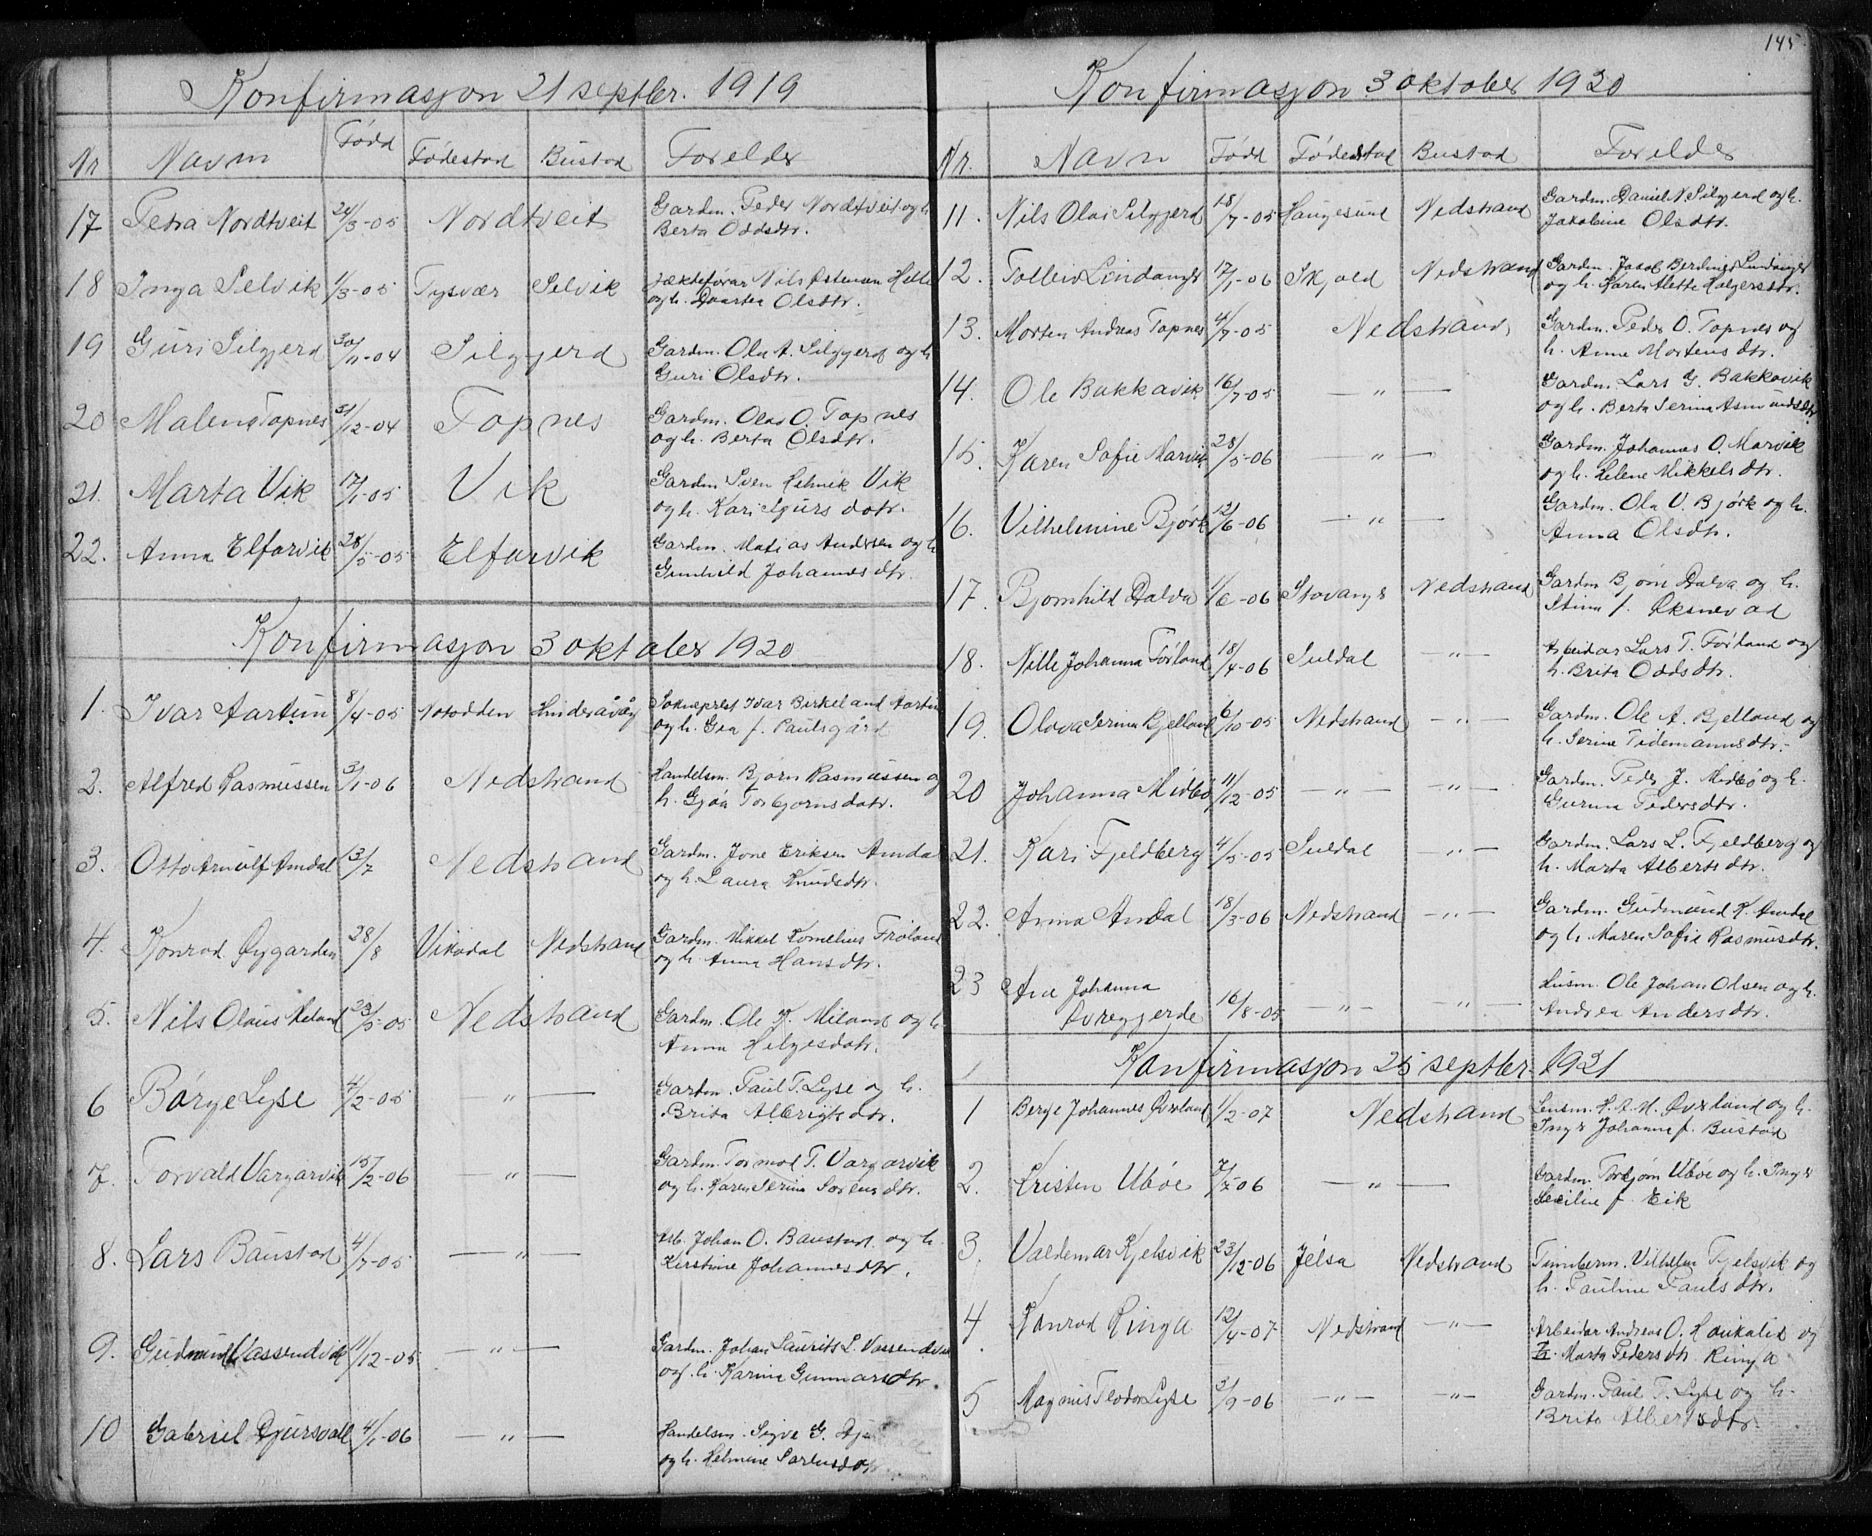 Konfirmasjon 21 septbr. 1919
Nr Navn Född Födestad Bustad Forelder
17 Petra Nordtveit 24/3-05 Nordtveit Gardm. Peder Nordtveit og h.
Berta Oddsdtr.
18 Inga Selvik 1/3-05 Tysvær Selvik Jækteförar Nils Östensen Hette
og h. Daartea Olsdtr.
19 Guri Silgjerd 30/11-04 Silgjerd Gardm. Ola A. Silgjerd og h
Guri Olsdtr.
20 Malena Topnes 31/12-04 Topnes Gardm. Olav O. Topnes
og h. Berta Olsdtr.
21. Marta Vik 17/1-05 Vik Gardm Sven Helmik Vik
og h. Kari Sjurs dotr.
22. Anna Elfarvik 28/5-05 Elfarvik Gardm. Matias Andersen og h
Gunhild Johannesdtr.
Konfirmasjon 3 oktober 1920
1. Ivar Aartun 8/4-05 Notodden Hinderåvåg Sokneprest Ivar Birkeland Aartun
og h. Gea f. Paulsgård
2. Alfred Rasmussen 3/1-06 Nedstrand Handelsm. Bjørn Rasmussen og
h. Gjöa Torbjornsdotr.
3. Otto Arnulf Amdal 13/7 Nedstrand Gardm. Jone Eriksen Amdal
og h. Laura Knudsdtr.
4. Konrad Øygarden 28/8 Vikadal Nedstrand Gardm. Mikkel Kornelius Fröland
og h. Anna Hansdtr.
5. Nils Olaus Meland 23/5-05 Nedstrand Gardm. Ole K. Miland og h.
Anna Helgesdotr.
6 Börge Lyse 4/2-05 — " — Gardm. Paul T. Lyse og h.
Brita Albrigtsdtr.
7. Torvald Vargarvik 15/2-06 — " — Gardm. Tormod T. Vargarvik
og h. Karen Serina Sorensdtr.
8. Lars Baustad 4/7-05 — " — Arb. Johan O. Baustad og h.
Kirstine Johannesdtr.
9. Gudmund Vassendvik 11/12-05 — " — Gardm. Johan Laurits L. Vassendvik
og h. Karina Gunnarsdtr.
10 Gabriel Djursvoll 4/1-06 — " — Handelsm. Sigve G.
og h. Helmine Sorensdotr.
145
Konfirmasjon 3 oktober 1920
Nr. Navn Född Födestad Bustad Forelder
11. Nils Olai Silgjerd 18/7-05 Haugesund Nedstrand Gardm. Daniel N. Silgjerd og h.
Jakobine Olsdtr.
12. Tolleiv Lindanger 17/1-06 Skjold Nedstrand Gardm. Jacob Berdines Lindanger
og h. Karen Alette Holgersdtr.
13. Morten Andreas Topnes 4/7-05 Nedstrand Gardm. Peder O. Topnes og
h. Anne Mortensdtr.
14. Ole Bakkavik 16/7-05 — " — Gardm. Lars G. Bakkavik
og h. Berta Serina Asmundsdtr.
15. Karen Sofie Marvik 28/5-06 — " — Gardm. Johannes O. Marvik
og h. Helene Mikkelsdtr.
16. Vilhelmine Bjørk 12/6-06 — " — Gardm. Ola V. Bjørk og h.
Anna Olsdtr.
17. Bjornhild Dalva 1/6-06 Stavanger Nedstrand Gardm Bjørn Dalva og h.
Stina f. Øksnevad
18. Nille Johanna Förland 18/4-06 Suldal — " — Arbeidar Lars T. Förland og
h. Brita Oddsdtr.
19. Olava Serina Bjelland 6/10-05 Nedstrand — " — Gardm. Ole A. Bjelland og
h. Serine Tidemannsdtr.
20 Johanna Midbö 11/12-05 — " — — " — Gardm. Peder J. Midbö og h.
Gurina Pedersdtr.
21. Kari Fjeldberg 4/5-05 Suldal — " — Gardm. Lars L. Fjeldberg og
h. Marta Albertsdtr.
22. Anna Amdal 18/3-06 Nedstrand — " — Gardm. Gudmund K. Amdal
og h. Maren Sofie Rasmusdtr.
23 Ane Johanna
Dvregjerde 16/8-05 — " — — " — Husm. Ole Johan Olsen og h.
Andrea Andersdtr.
Konfirmasjon 25 septbr. 1921
1 Berge Johannes Øvrland 1/2-07 Nedstrand Lensm. H. A. M. Øvrland og h.
Inger Johanne f. Bustad
2. Kristen Uböe 7/7-06 — " — Gardm. Torbjørn Uböe og h. Inger
Secilie f. Eik
3. Valdemar Kjelsvik 23/12-06 Jelsa Nedstrand Timberm. Vilhelm Fjelsvik og
h. Pauline Paulsdtr.
4. Konrad Ringa 12/4-07 Nedstrand — " — Arbeidar Andreas O. Haukalid og
h. Marta Pedersdtr. Ringa
5 Magnus Teodor Lyse 3/9-06 — " — — " — Gardm. Paul T. Lyse og h.
Brita Albertsdtr.